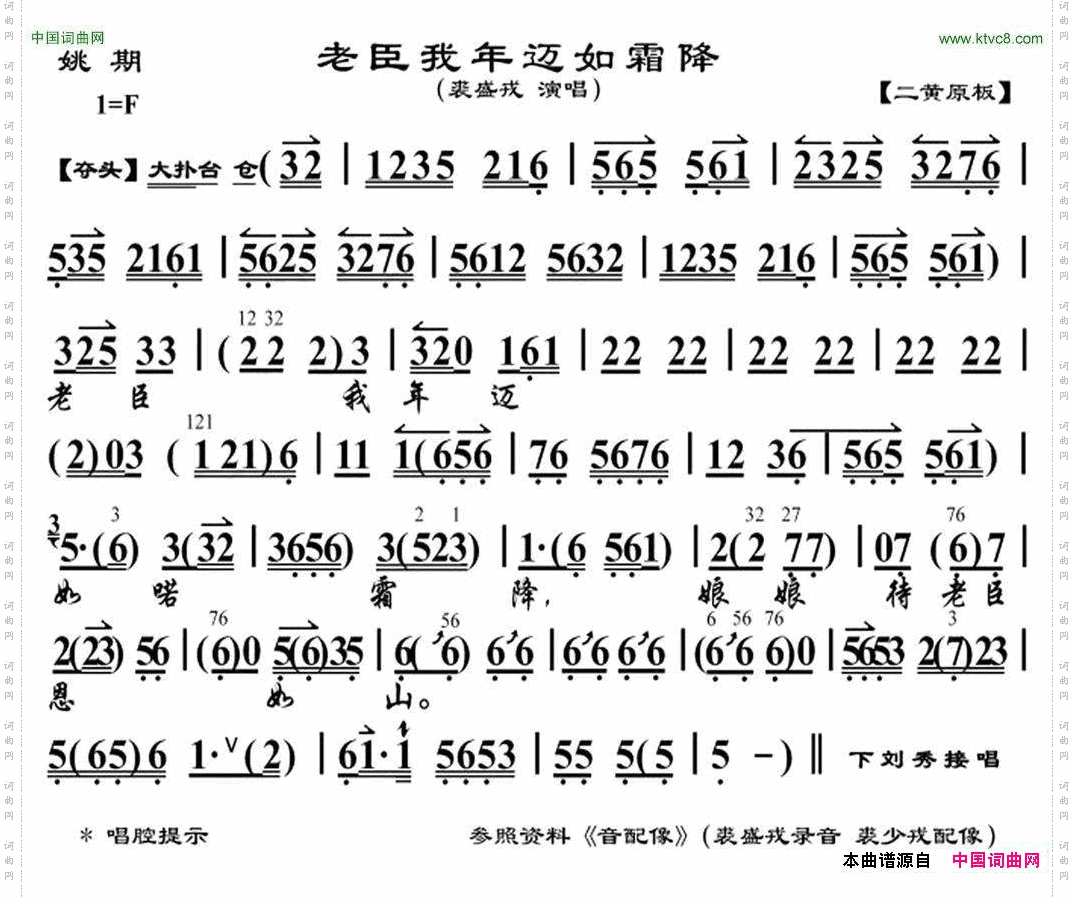 中国词曲网
www.ktvc8.com
姚期
老臣我年迈如霜降
(裘盛戎 演唱)
【二黄原板】
1=F
【夺头】大扑台 仓(32 | 1235 216 | 565 561 | 2325 3276 |
535 2161 | 5625 3276 | 5612 5632 | 1235 216 | 565 561) |
12 32
325 33 | (22 2)3 | 320 161 | 22 22 | 22 22 | 22 22 |
老 臣 我 年 迈
121
(2)03 (121)6 | 11 1(656 | 76 5676 | 12 36 | 565 561) |
3 3 2 1 32 27 76
5·(6) 3(32 | 3656) 3(523) | 1·(6 561) | 2(2 77) | 07 (6)7 |
如 喏 霜 降, 娘 娘 待 老 臣
76 56 6 56 76 3
2(23) 56 | (6)0 5(6)35 | 6( 6) 66 | 66 66 | (66 6)0 | 5653 2(7)23 |
恩 如 山。
5(65)6 1·V(2) | 61·1 5653 | 55 5(5 | 5 -) ‖ 下刘秀接唱
* 唱腔提示
参照资料《音配像》(裘盛戎录音 裘少戎配像)
本曲谱源自 中国词曲网